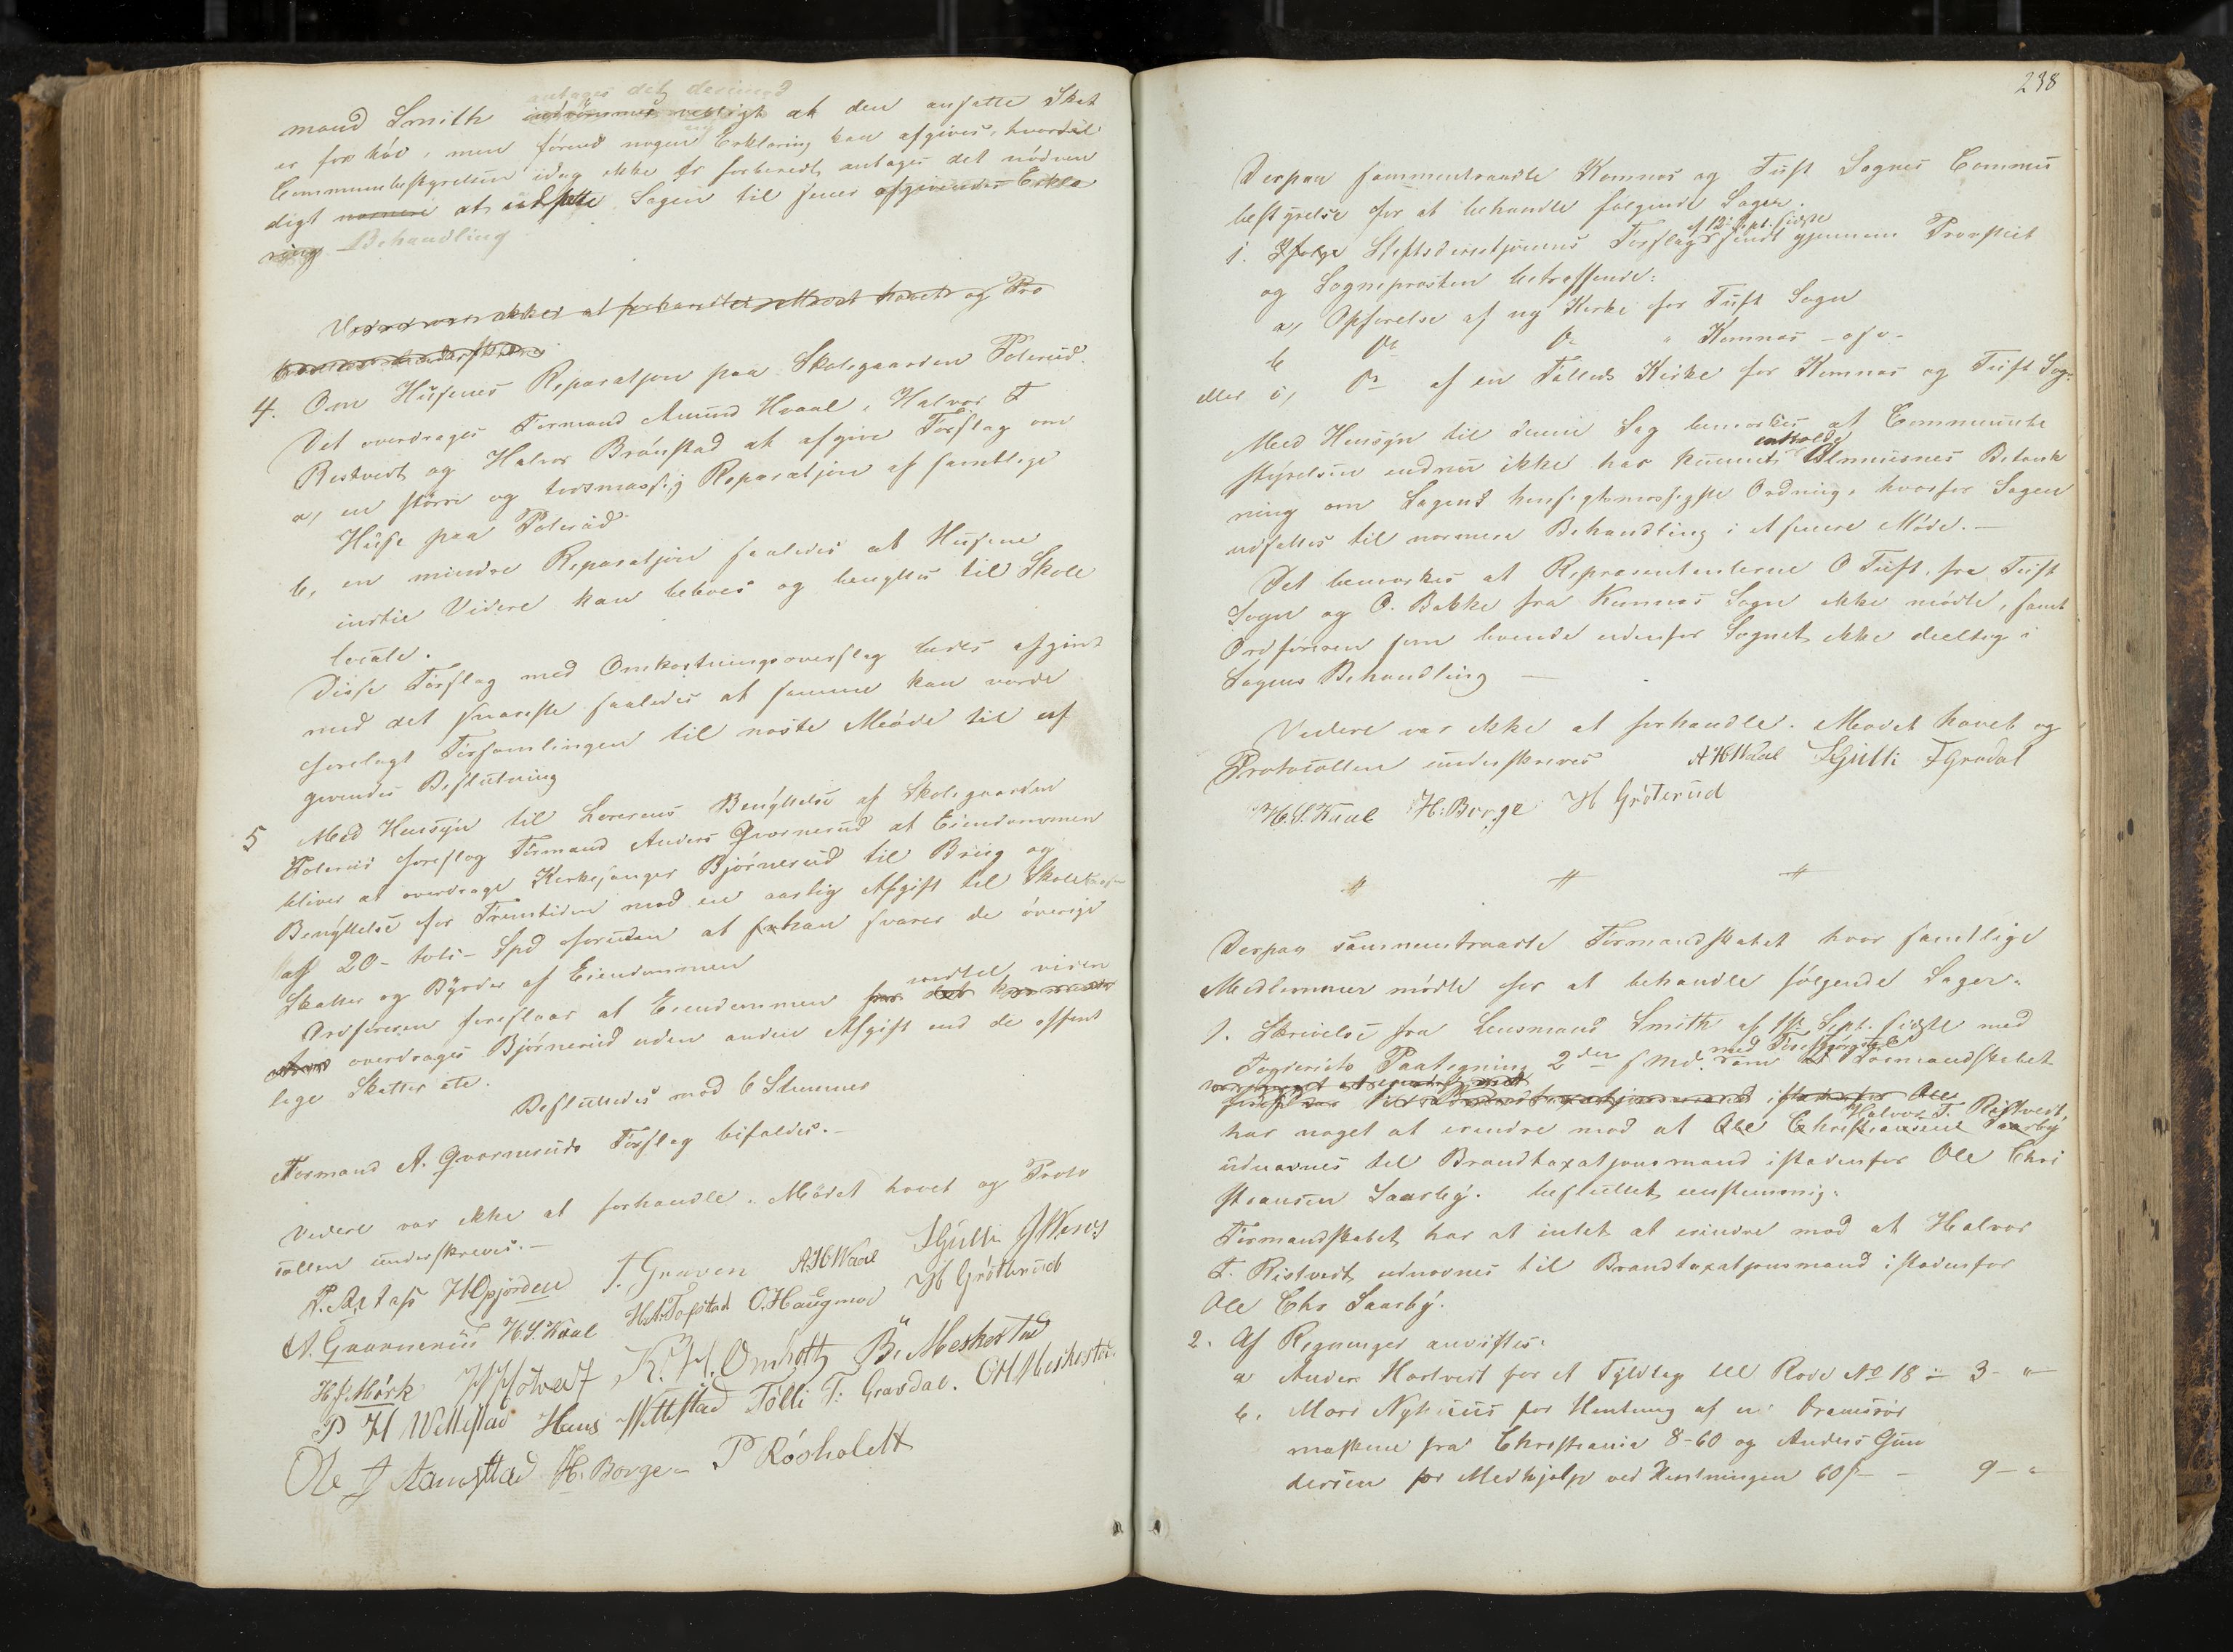 antages det derimod
mand Smith indrömmes vistligt at den ansatte Skat
er for höi, men förend nogen Erklæring kan afgives, hvortil
Communebestyrelsen idag ikke er forberedt, antages det nödven
digt at udsætte Sagen til senere afgivendes Erklæ
ring Behandling
Videre var ikke at forhandle, Mödet hævet og Pro
4. Om Husenes Reparatjon paa Skolegaarden Foterud.
Det overdrages Formænd Amund Hvaal, Halvor T
Ristvedt og Halvor Brönstad at afgive Forslag om
a, en större og tidsmæssig Reparatjon af samtlige
Huse paa Foterud
b, en mindre Reparatjon saaledes at Husene
indtil Videre kan beboes og benyttes til Skole
locale.
Disse Forslag med Omkostningsoverslag bedes afgivet
med det snareste saaledes at samme kan vorde
forelagt Forsamlingen til næste Möde til af
givendes Beslutning
5 Med Hensyn til Lærerens Benyttelse af Skolegaarden
Foterud foreslog Formand Anders Qvarnerud at Eiendommen
bliver at overdrage Kirkesanger Björnerud til Brug og
Benyttelse for Fremtiden mod en aarlig Afgift til Skolekas
af 20 - tols - Spd foruden at han svarer de överige
Skatter og Byrder af Eiendommen
Ordföreren foreslaar at Eiendommen indtil viden
overdrages Björnerud uden anden Afgift end de offent
lige Skatter etc.
Besluttedes mod 6 Stemmer
Formand A. Qvarneruds Forslag bifaldes. -
Videre var ikke at forhandle. Mödet hævet og Proto
collen underskreves. -
T. Graven A H Waal SGulli
A. Qvarnerud H. S. Kaal H. Fossstad O. Haugmoe H Gröterud
H J. Mörk K. H. Omholt B. Meskestad
P H Wettestad Hans Wettestad Tolli T. Gravdal. O H Meskestad.
Ole J Aamstad H. Borge P Rösholdt
238
Derpaa sammentraadte Komnæs og Tuft Sognes Commu
bestyrelse for at behandle fölgende Sager.
af 12te Sept. sidste
1. Ifölge Stiftsdirectjonens Forslag sendt gjennem Provstiet
og Sognepresten betreffende:
a, Opförelse af ny Kirke for Tuft Sogn
b do do " Komnæs - ofv -
eller c, do af en Fælleds Kirke for Komnæs og Tuft Sog:
Med Hensyn til denne Sag bemærkes at Communebe
styrelsen endnu ikke har kunnet indholde Almuesnes Betænk
ning om Sagens hensigtsmæssigste Ordning, hvorfor Sagen
udsættes til nærmere Behandling i et senere Möde. -
Det bemærkes at Repræsentanterne O Tuft fra Tuft
Sogn og O. Bakke fra Kumnæs Sogn ikke mödte, samt
Ordföreren som boende udenfor Sognet ikke deeltog i
Sagens Behandling -
Videre var ikke at forhandle. Mödet hævet og
Protocollen underskreves A H Waal SGulli T Gravdal
H. S. Kaal H: Borge H Gröterud
# # #
Derpaa sammentraadte Formandskabet hvor samtlige
Medlemmer mödte for at behandle fölgende Sager:
1. Skrivelse fra Lensmand Smith af 1ste Sept. sidste med
Fogderiets Paategning 2den s Md. med Forespörgsel om Formandskabet
har noget at erindre mod at Halvor T. Ristvedt
udnævnes til Brandtaxatjonsmand istedenfor Ole Chri
stiansen Saarby. besluttet eenstemmig:
Formandskabet har at intet at erindre mod at Halvor
T. Ristvedt udnævnes til Brandtaxatjonsmand istedenfor
Ole Chr Saarby.
2. Af Regninger anvistes:
a Anders Hostvedt for et Fyldlag til Rode No 18 - 3 - "
b. Mari Nyhuus for Hentning af en
maskine fra Christiania 8-60 og Anders Gun
dersen for Medhjælp ved Hentningen 60 s - 9 - "